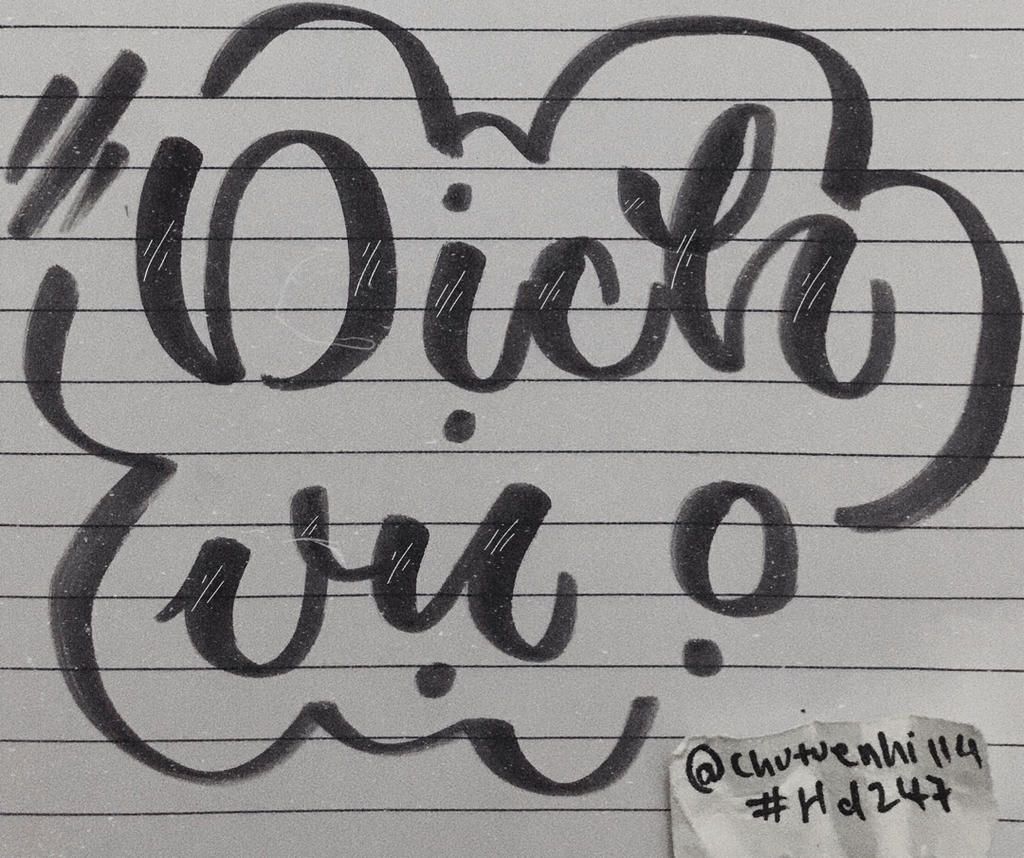 Dịch
vụ ọ
@chutuenhi114
#Hd247